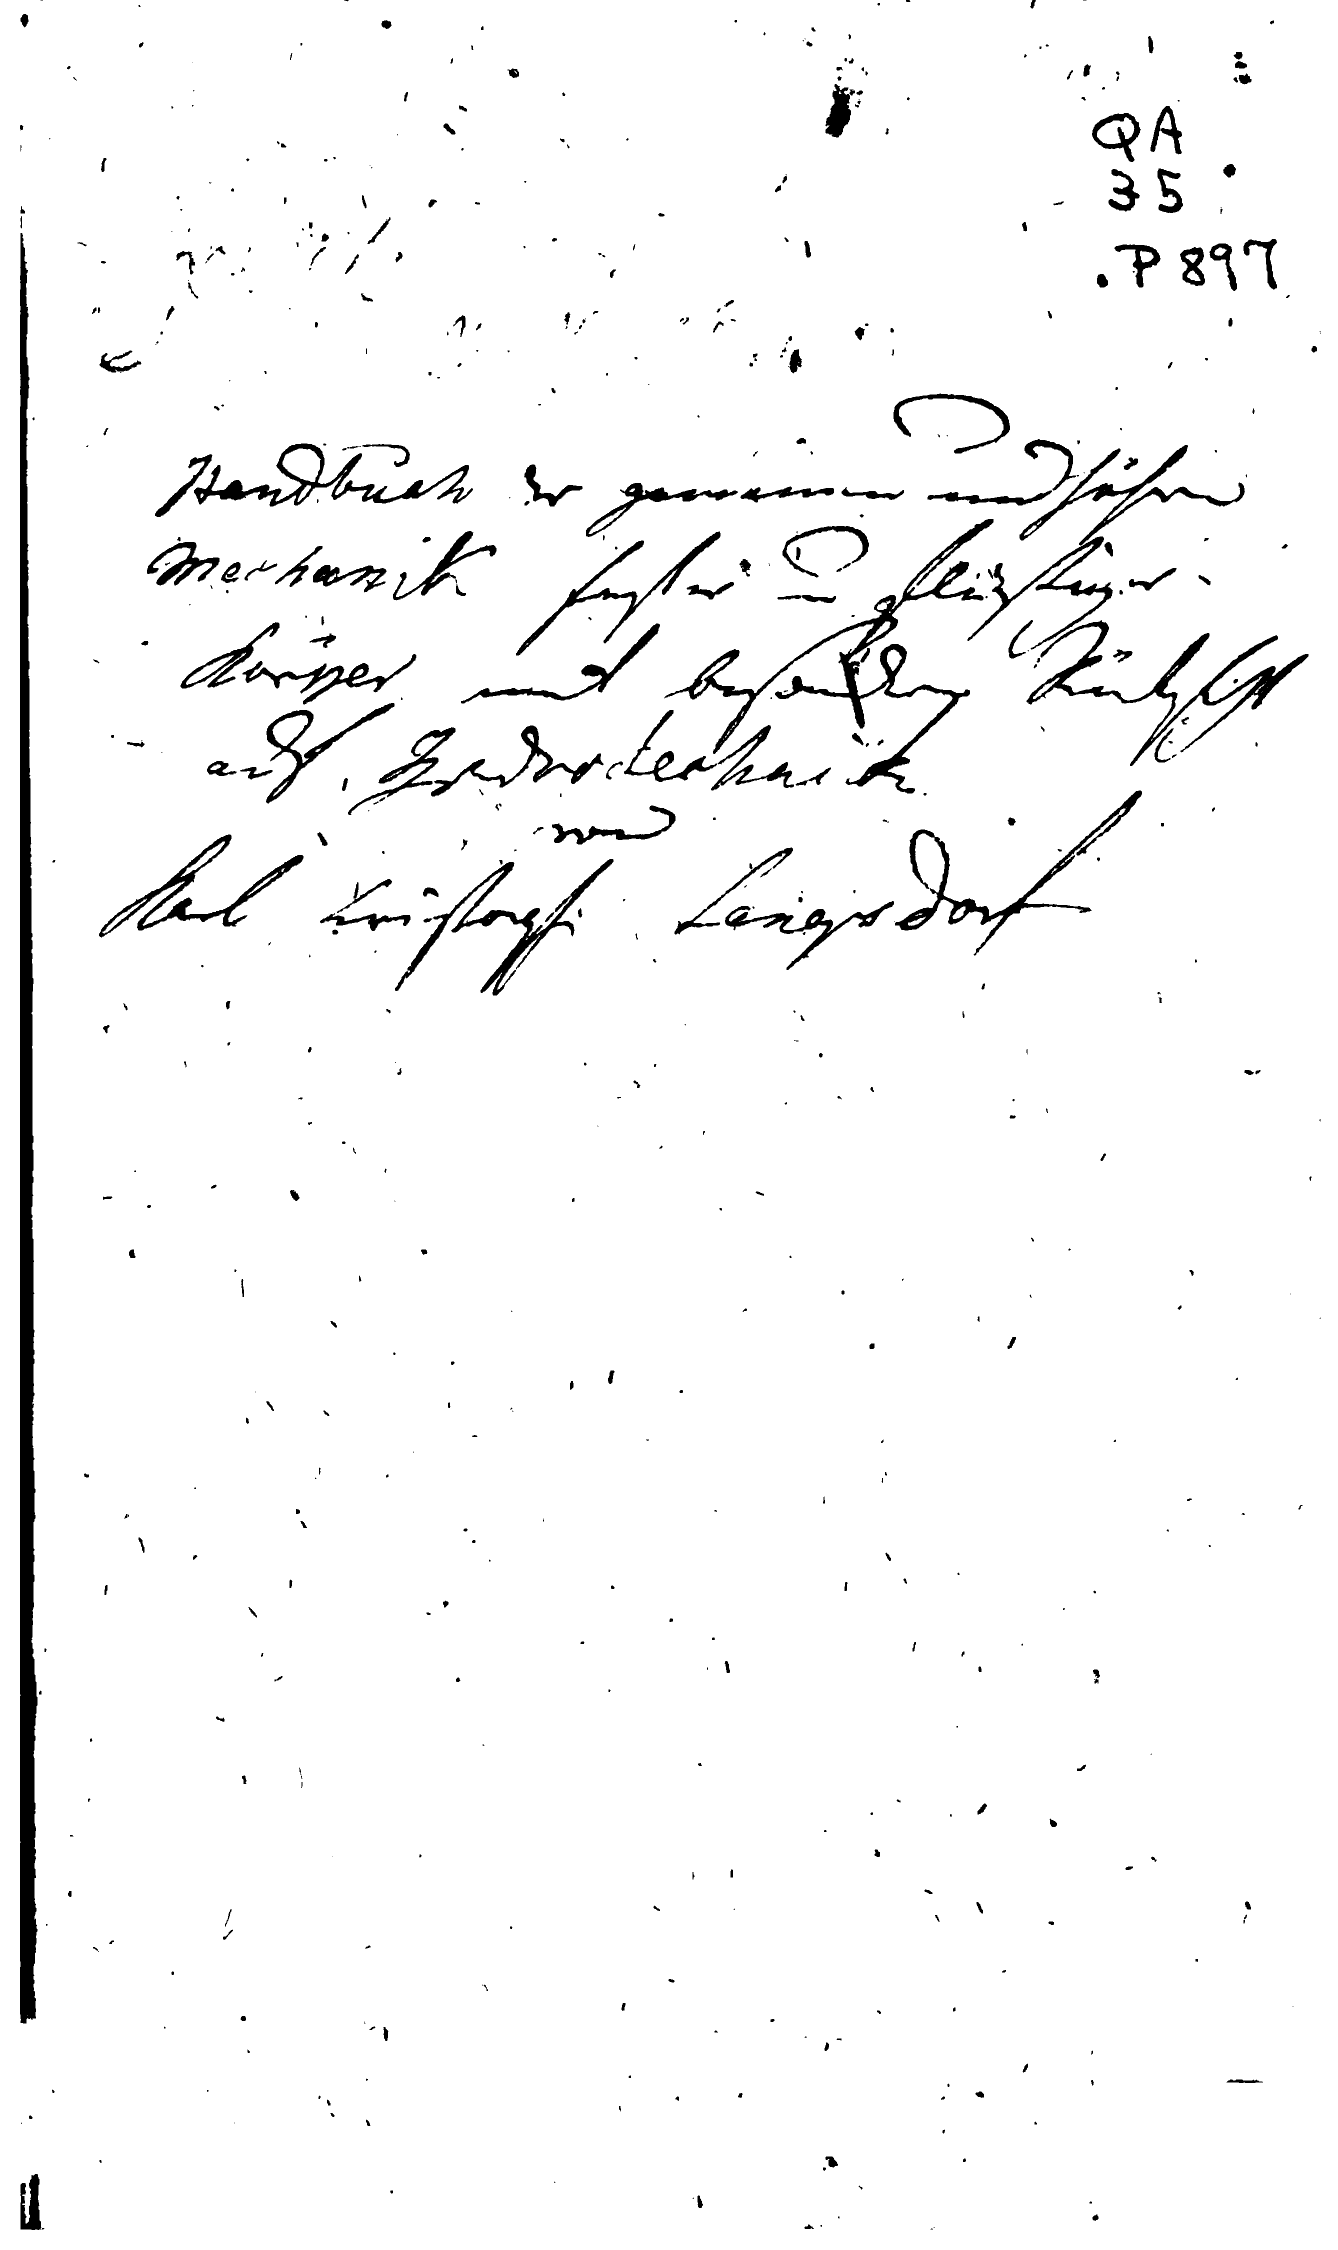 QA
35
.P897
Handbuch der gemeinen und höhern
Mechanik fester und flüssiger
Körper mit besonderer Rücksicht
auf Hydrotechnik
von
Karl Kristoph Langsdorf